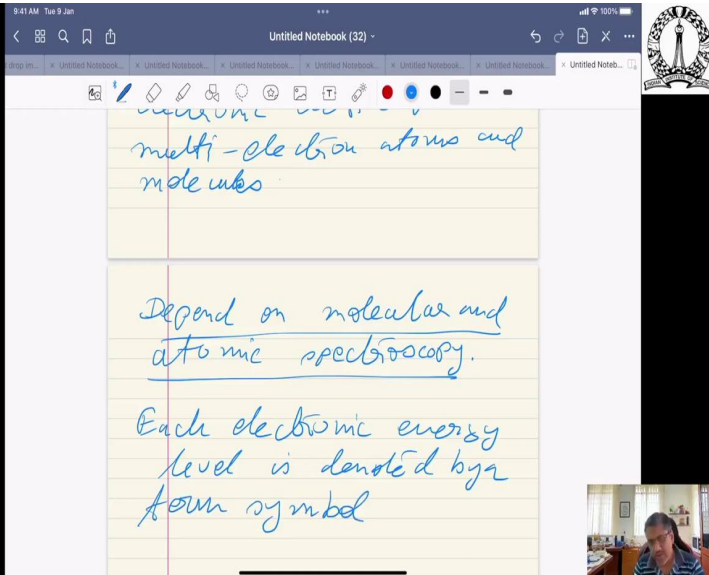 9:41 AM Tue 9 Jan
100%
Untitled Notebook (32)
Untitled Notebook...
Untitled Notebook...
Untitled Notebook...
Untitled Notebook...
Untitled Notebook...
Untitled Notebook...
Untitled Noteb...
multi-electron atoms and
molecules
Depend on molecular and
atomic spectroscopy.
Each electronic energy
level is denoted by a
term symbol